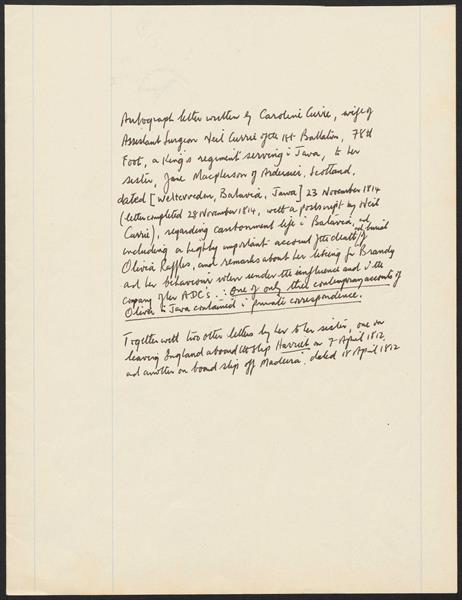 Autograph letter written by Caroline Currie, wife of
Assistant Surgeon Neil Currie of the 1st Battalion, 78th
Foot, a King's regiment serving in Java, to her
sister, Jane Macpherson of Ardersier, Scotland,
dated [Weltevreden, Batavia, Java] 23 November 1814
(letter completed 28 November 1814, with a postscript by Neil
Currie), regarding cantonment life in Batavia, and
including a highly important account of the death and burial of
Olivia Raffles, and remarks about her liking for Brandy
and her behaviour when under the influence and in the
company of her ADCs. One of only three contemporary accounts of
Olivia in Java contained in private correspondence.
Together with two other letters by her to her sister, one on
leaving England aboard the ship Harriet on 7 April 1812,
and another on board ship off Madeira, dated 18 April 1812